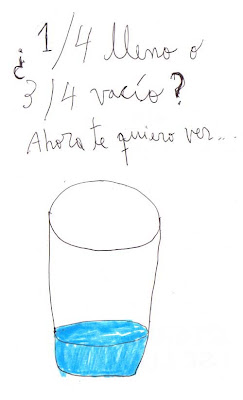 ¿1/4 lleno o
3/4 vacío?
Ahora te quiero ver...